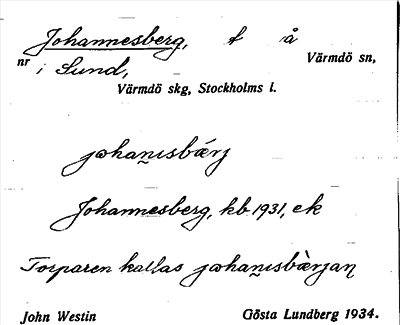 Johannesberg, t å
nr i Sund, Värmdö sn,
Värmdö skg, Stockholms l.
johan̯ısbærj
Johannesberg, kb 1931, ek
Torparen kallas johan̯ısbærjan
John Westin Gösta Lundberg 1934.